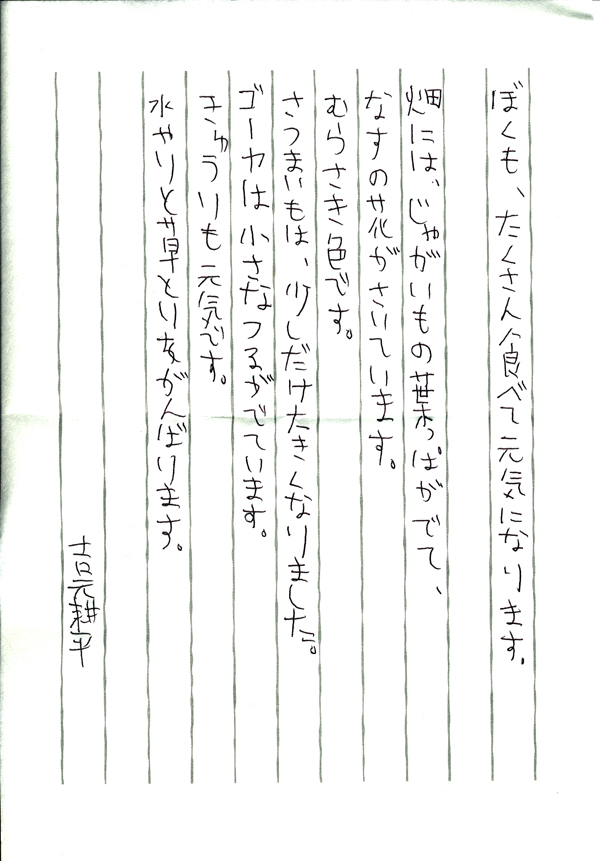 ぼくも、たくさん食べて元気になります。
畑には、じゃがいもの葉っぱがでて、
なすの花がさいています。
むらさき色です。
さつまいもは、少しだけ大きくなりました。
ゴーヤは小さなつるがでています。
きゅうりも元気です。
水やりと草とりをがんばります。
吉元耕平